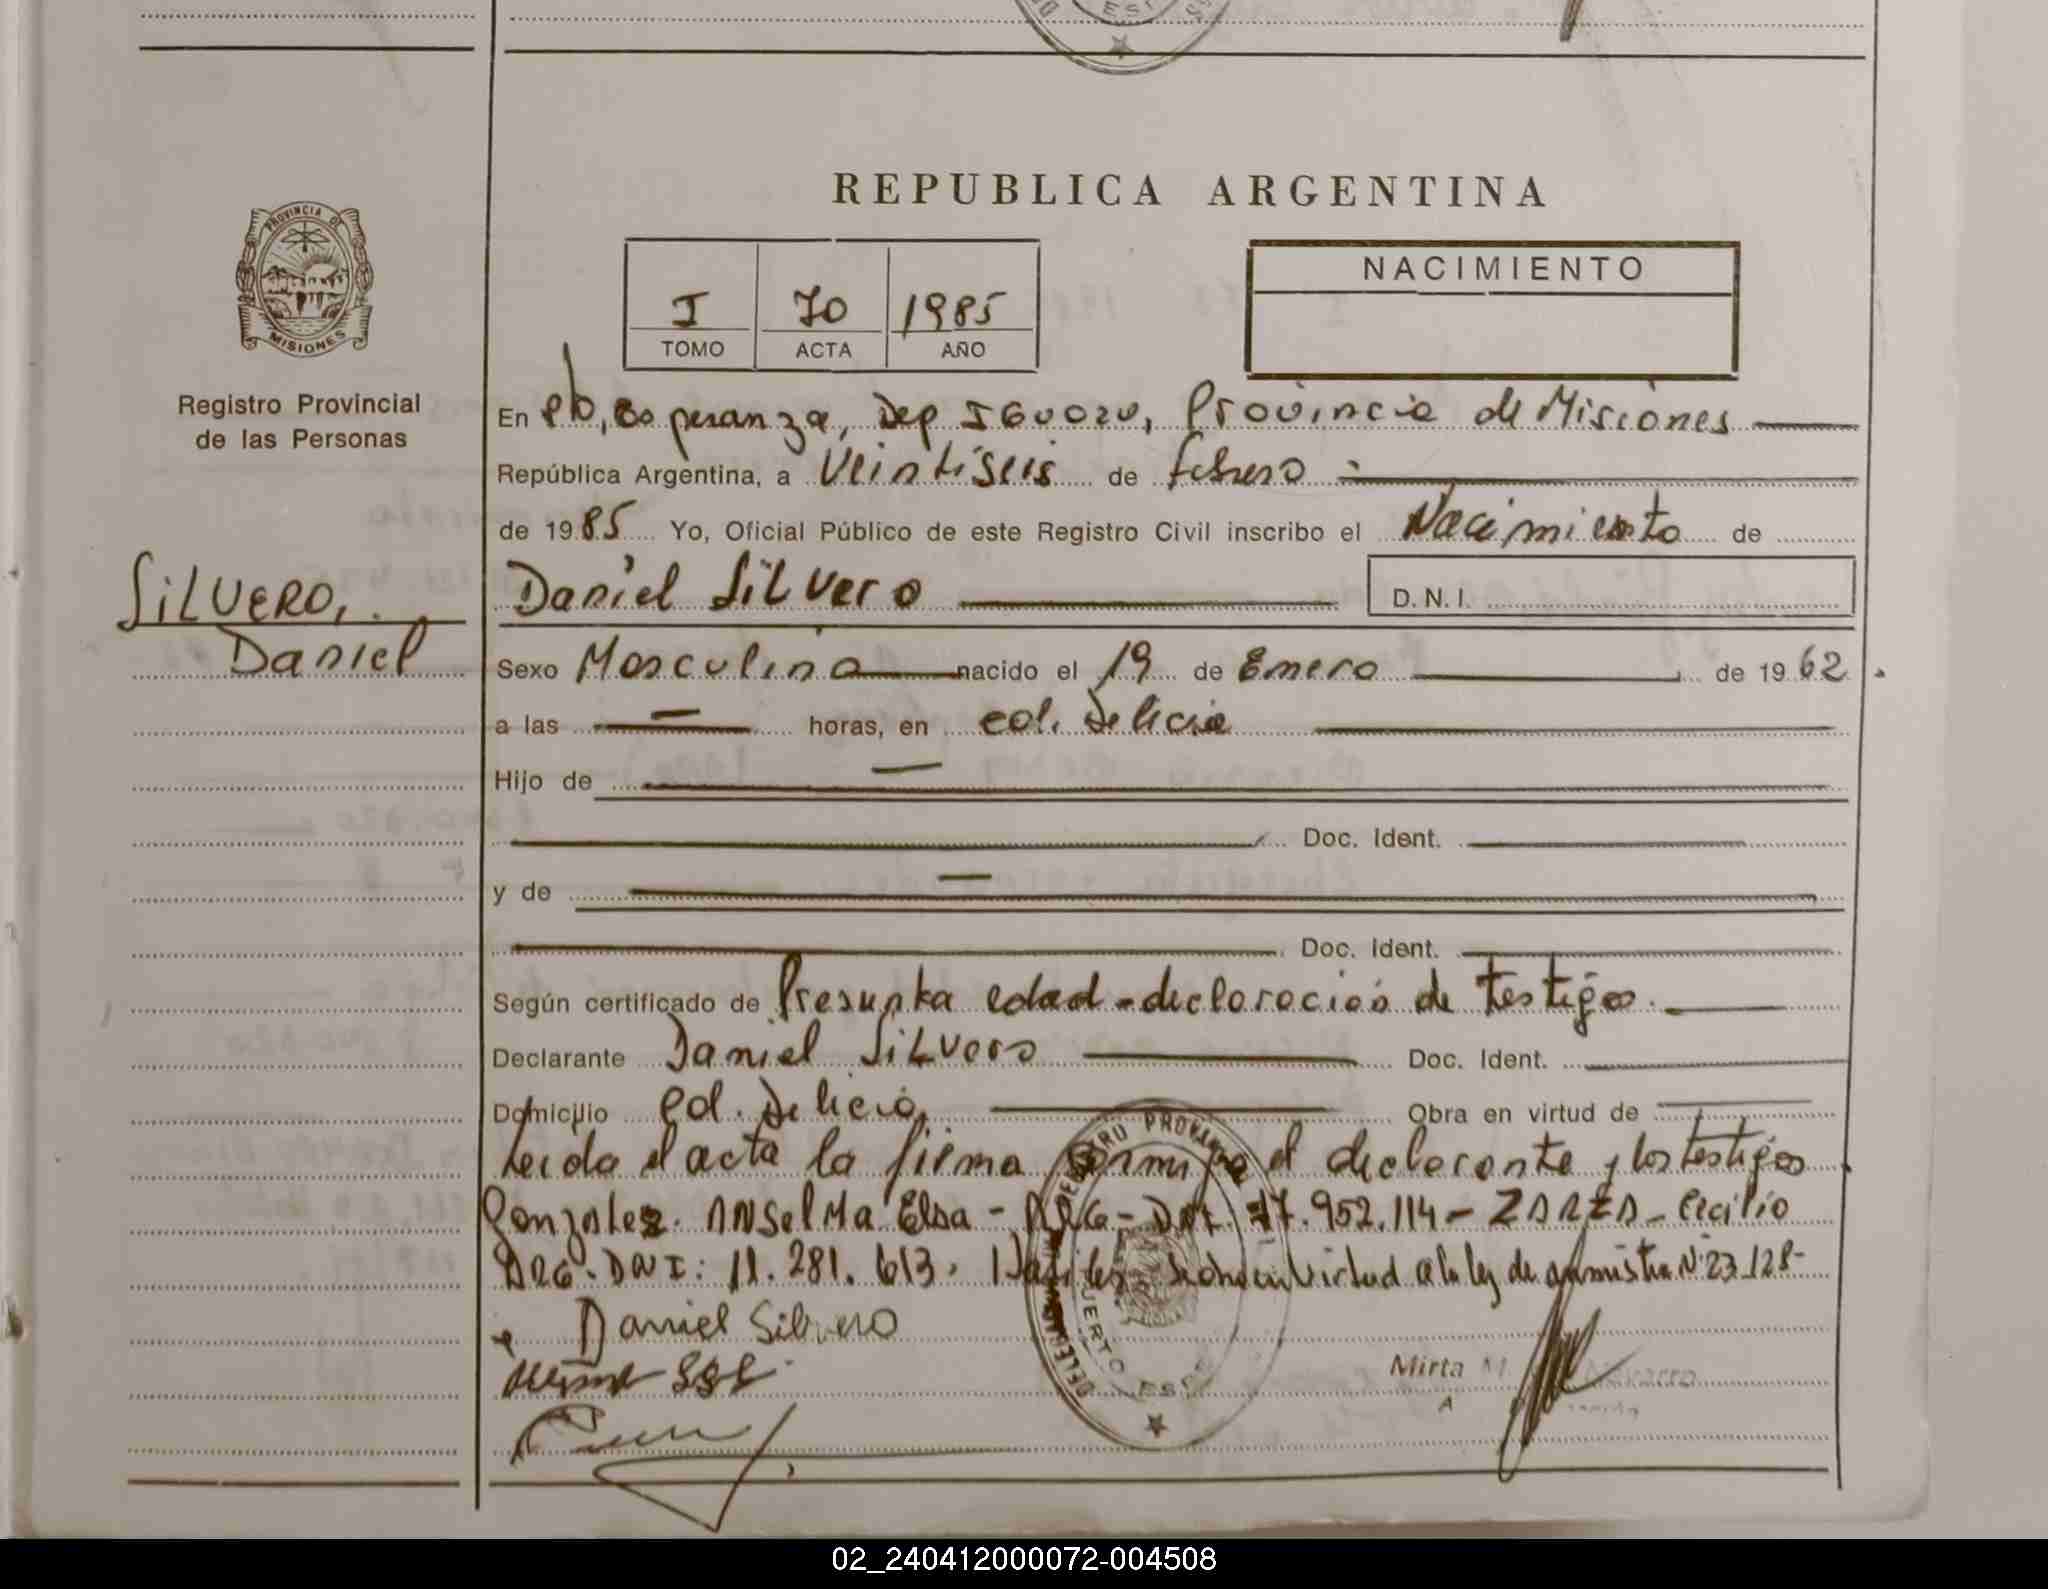 REPUBLICA ARGENTINA
PROVINCIA DE
MISIONES
Registro Provincial
de las Personas
I 70 1985
TOMO ACTA AÑO
NACIMIENTO
En Pto, Esperanza, Dep IGUAZU, Provincia de Misiones
República Argentina, a Veintiseis de febrero
de 1985 Yo, Oficial Público de este Registro Civil inscribo el Nacimiento de
Daniel Silvero D.N.I.
SILVERO,
Daniel
Sexo Masculino nacido el 19 de Enero de 1962
a las horas, en Col. Delicia
Hijo de
Doc. Ident.
y de
Doc. Ident.
Según certificado de Presunta edad - declaración de testigos.
Declarante Daniel Silvero Doc. Ident.
Domicilio Col. Delicia, Obra en virtud de
Leida el acta la firma el declarante y los testigos
Gonzalez. ANSELMA Elsa - ARG - 17.952.114 - ZARZA - Cecilio
ARG - DNI: 11.281.613. virtud a la ley de amnistia Nº 23.128-
Daniel Silvero
Mirta M. Navarro
02_240412000072-004508